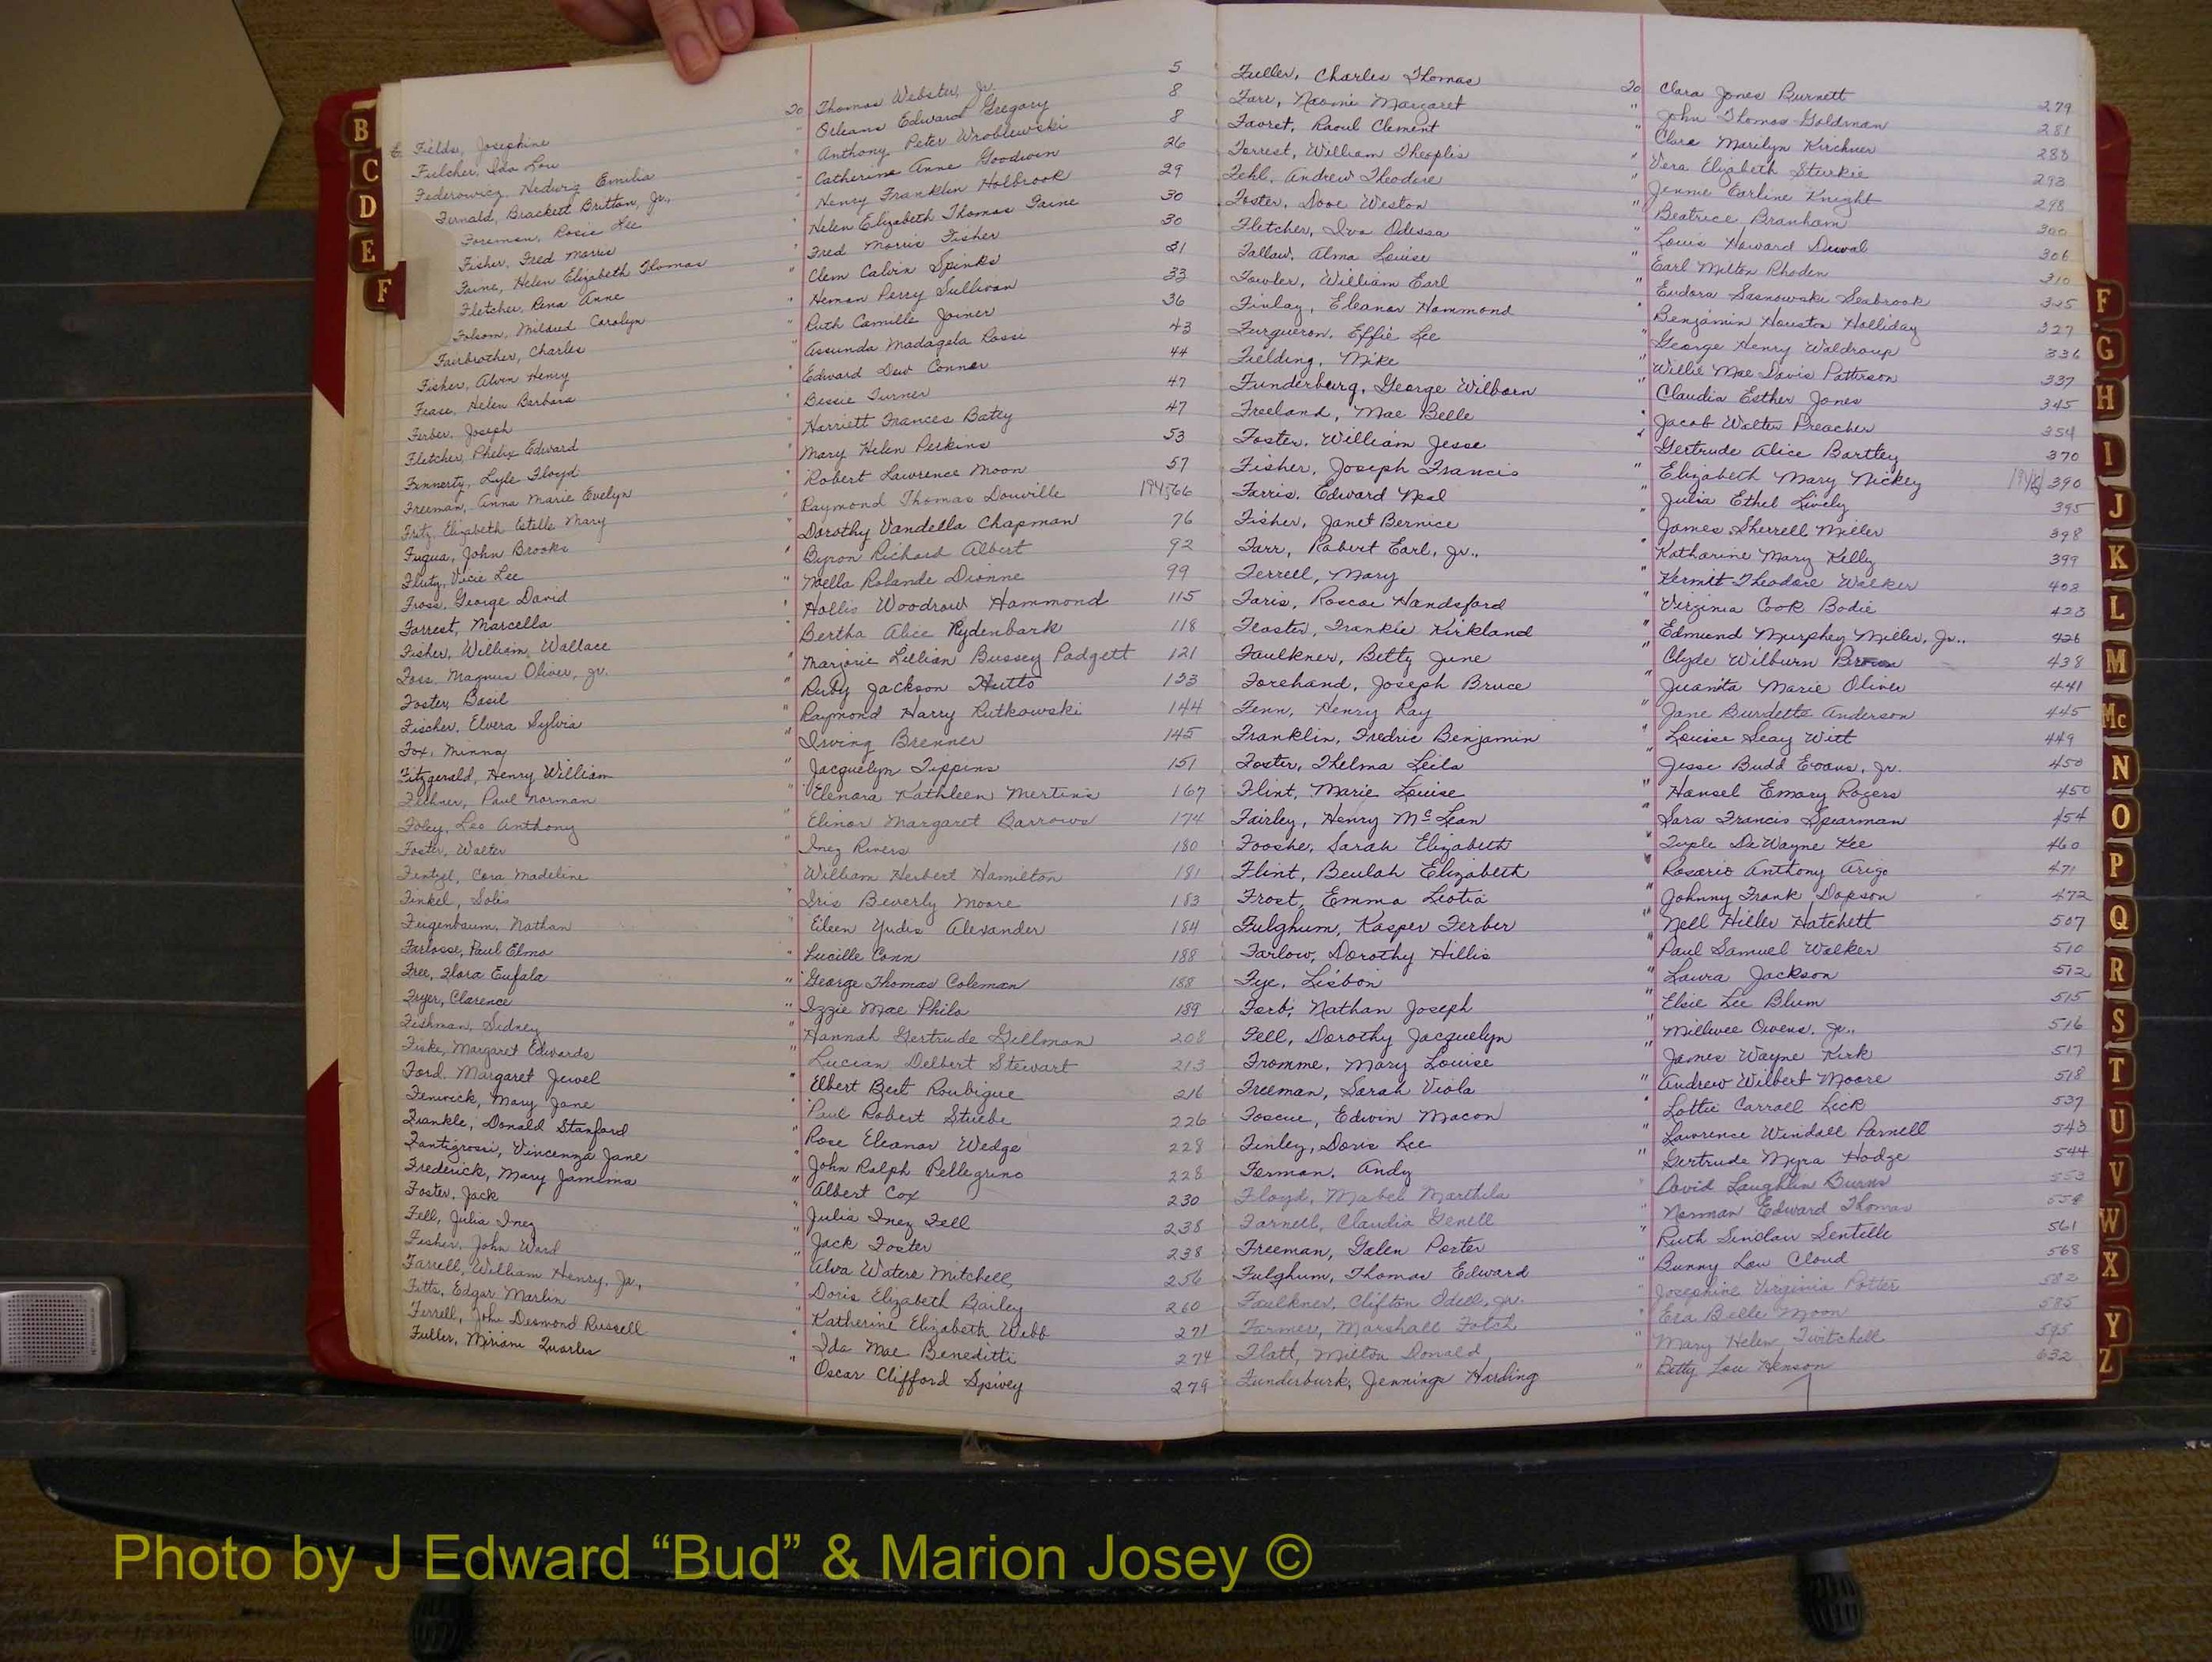 B
C
D
E
F
& Fields, Josephine To Thomas Webster, Jr. 5
Fulcher, Ida Lou " Orleans Edward Gregory 8
Federowicz, Hedwig Emilia " Anthony Peter Wroblewski 8
Fernald, Brackett Britton, Jr., " Catherine Anne Goodwin 26
Foreman, Rosie Lee " Henry Franklin Holbrook 29
Fisher, Fred Morris " Helen Elizabeth Thomas Faine 30
Faine, Helen Elizabeth Thomas " Fred Morris Fisher 30
Fletcher, Rena Anne " Clem Calvin Spinks 31
Folsom, Mildred Carolyn " Heman Perry Sullivan 33
Fairbrother, Charles " Ruth Camille Joiner 36
Fisher, Alvin Henry " Assunda Madagela Rossi 43
Fease, Helen Barbara " Edward Dew Conner 44
Ferber, Joseph " Bessie Turner 47
Fletcher, Phelix Edward " Harriett Frances Batey 47
Finnerty, Lyle Floyd " Mary Helen Perkins 53
Freeman, Anna Marie Evelyn " Robert Lawrence Moon 57
Fritz, Elizabeth Estelle Mary " Raymond Thomas Douville 1945 66
Fuqua, John Brooks " Dorothy Vandella Chapman 76
Fluty, Vicie Lee " Byron Richard Albert 92
Fross, George David " Noella Rolande Dionne 99
Forrest, Marcella " Hollis Woodrow Hammond 115
Fisher, William Wallace " Bertha Alice Rydenbark 118
Foss, Magnus Oliver, Jr. " Marjorie Lillian Bussey Padgett 121
Foster, Basil " Ruby Jackson Hutto 133
Fischer, Elvera Sylvia " Raymond Harry Rutkowski 144
Fox, Minna " Irving Brenner 145
Fitzgerald, Henry William " Jacquelyn Tippins 151
Fechner, Paul Norman " Elenora Kathleen Mertins 167
Foley, Leo Anthony " Elinor Margaret Barrows 174
Foster, Walter " Inez Rivers 180
Fentzel, Cora Madeline " William Herbert Hamilton 181
Finkel, Solis " Iris Beverly Moore 183
Feigenbaum, Nathan " Eileen Yudis Alexander 184
Farlosse, Paul Elmo " Lucille Conn 188
Free, Flora Eufala " George Thomas Coleman 188
Fryer, Clarence " Izzie Mae Philo 189
Fishman, Sidney " Hannah Gertrude Gillman 208
Fiske, Margaret Edwards " Lucian Delbert Stewart 213
Ford, Margaret Jewel " Elbert Bert Roubique 216
Fenwick, Mary Jane " Paul Robert Stuebe 226
Frankle, Donald Stanford " Rose Eleanor Wedge 228
Fantigrossi, Vincenza Jane " John Ralph Pellegrino 228
Frederick, Mary Jamima " Albert Cox 230
Foster, Jack " Julia Inez Fell 238
Fell, Julia Inez " Jack Foster 238
Fisher, John Ward " Alva Waters Mitchell, 256
Farrell, William Henry, Jr., " Doris Elizabeth Bailey 260
Fitts, Edgar Marlin " Katherine Elizabeth Webb 271
Ferrell, John Desmond Russell " Ida Mae Beneditti 274
Fuller, Miriam Quarles " Oscar Clifford Spivey 279
Fuller, Charles Thomas To Clara Jones Burnett 279
Farr, Naomi Margaret " John Thomas Goldman 281
Favret, Raoul Clement " Clara Marilyn Kirchner 288
Forrest, William Theoplis " Vera Elizabeth Sturkie 293
Fehl, Andrew Theodore " Jennie Earline Knight 298
Foster, Dove Weston " Beatrice Branham 300
Fletcher, Iva Odessa " Louis Howard Duval 306
Fallaw, Alma Louise " Earl Milton Rhoden 310
Fowler, William Earl " Eudora Sasnowski Seabrook 325
Finlay, Eleanor Hammond " Benjamin Houston Holliday 327
Furgueron, Effie Lee " George Henry Waldroup 336
Fielding, Mike " Willie Mae Davis Patterson 337
Funderburg, George Wilborn " Claudia Esther Jones 345
Freeland, Mae Belle " Jacob Walter Preacher 354
Foster, William Jesse " Gertrude Alice Bartley 370
Fisher, Joseph Francis " Elizabeth Mary Nickey 390
Farris, Edward Neal " Julia Ethel Lively 395
Fisher, Janet Bernice " James Sherrell Miller 398
Farr, Robert Earl, Jr., " Katharine Mary Kelly 399
Ferrell, Mary " Kermit Theodore Walker 403
Faris, Roscoe Handsford " Virginia Cook Bodie 423
Feaster, Frankie Kirkland " Edmund Murphey Miller, Jr., 426
Faulkner, Betty June " Clyde Wilburn Brown 438
Forehand, Joseph Bruce " Juanita Marie Oliver 441
Fenn, Henry Ray " Jane Burdette Anderson 445
Franklin, Fredric Benjamin " Louise Seay Witt 449
Foster, Thelma Leila " Jesse Budd Evans, Jr. 450
Flint, Marie Louise " Hansel Emory Rogers 450
Fairley, Henry McLean " Sara Francis Spearman 454
Fooshe, Sarah Elizabeth " Tuple DeWayne Kee 460
Flint, Beulah Elizabeth " Rosario Anthony Arigo 471
Frost, Emma Leotia " Johnny Frank Dopson 472
Fulghum, Kasper Ferber " Nell Hiller Hatchett 507
Farlow, Dorothy Hillis " Paul Samuel Walker 510
Fye, Lisbon " Laura Jackson 512
Farb, Nathan Joseph " Elsie Lee Blum 515
Fell, Dorothy Jacquelyn " Millwee Owens, Jr., 516
Fromme, Mary Louise " James Wayne Kirk 517
Freeman, Sarah Viola " Andrew Wilbert Moore 518
Foscue, Edwin Macon " Lottie Carrall Lick 537
Finley, Doris Lee " Lawrence Windall Parnell 543
Forman, Andy " Gertrude Myra Hodge 544
Floyd, Mabel Marthila " David Laughlin Burns 553
Farnell, Claudia Genell " Norman Edward Thomas 558
Freeman, Galen Porter " Ruth Sinclair Sentelle 561
Fulghum, Thomas Edward " Bunny Lou Cloud 568
Faulkner, Clifton Odell, Jr. " Josephine Virginia Potter 582
Farmer, Marshall Fotch " Era Belle Moon 585
Flatt, Milton Donald " Mary Helen Twitchell 595
Funderburk, Jennings Harding " Betty Lou Henson 632
F
G
H
I
J
K
L
M
Mc
N
O
P
Q
R
S
T
U
V
W
X
Y
Z
Photo by J Edward “Bud” & Marion Josey ©